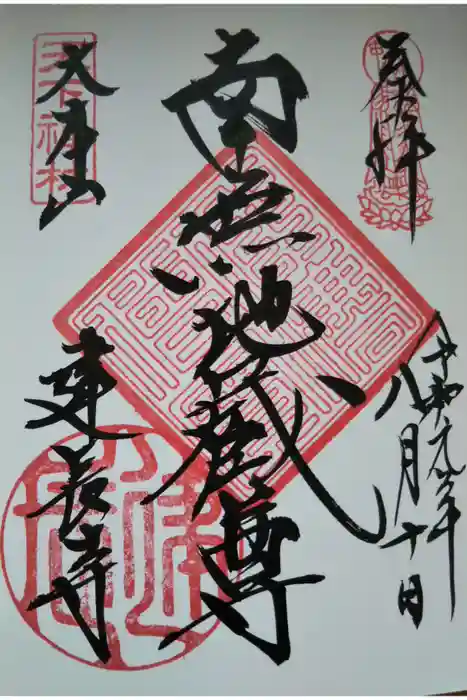 奉拝
令和元年
八月十日
南無地蔵尊
大本山
建長寺
天下禅林